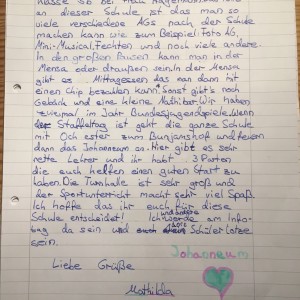 Klasse 5B bei Frau
an dieser Schule ist das man so
viele verschiedene AGs nach der Schule
machen kann wie zum Beispiel: Foto AG,
Mini-Musical, Fechten und noch viele andere.
In den großen Pausen kann man in der
Mensa oder draußen sein. In der Mensa
gibt es Mittagessen das man dann mit
einen Chip bezahlen kann. Sonst gibt's noch
Gebäck und eine kleine Mathibar. Wir haben
zweimal im Jahr Bundesjugendspiele. Wenn
Staffeltag ist geht die ganze Schule
mit Och ester zum Bunjamshof und feuern
dann das Johanneum an. Hier gibt es sehr
nette Lehrer und ihr habt 3 Paten
die euch helfen einen guten Start zu
haben. Die Turnhalle ist sehr groß und
der Sportunterricht macht sehr viel Spaß.
Ich hoffe das ihr euch für diese
Schule entscheidet! Ich und andere werde am Info-
tag da sein und Schüler Lotze
sein.
Johanneum
Liebe Grüße
Mathilda